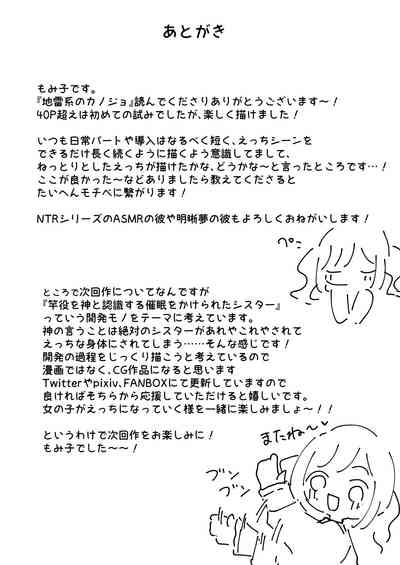 あとがき
もみ子です。
『地雷系のカノジョ』読んでくださりありがとうございます～！
40P超えは初めての試みでしたが、楽しく描けました！
いつも日常パートや導入はなるべく短く、えっちシーンを
できるだけ長く続くように描くよう意識してまして、
ねっとりとしたえっちが描けたかな、どうかな～と言ったところです…！
ここが良かった～などありましたら教えてくださると
たいへんモチベに繋がります！
NTRシリーズのASMRの彼や明晰夢の彼もよろしくおねがいします！
ペこ
ところで次回作についてなんですが
『竿役を神と認識する催眠をかけられたシスター』
っていう開発モノをテーマに考えています。
神の言うことは絶対のシスターがあれやこれやされて
えっちな身体にされてしまう……そんな感じです！
開発の過程をじっくり描こうと考えているので
漫画ではなく、CG作品になると思います
Twitterやpixiv、FANBOXにて更新していますので
良ければそちらから応援していただけると嬉しいです。
女の子がえっちになっていく様を一緒に楽しみましょ～！！
というわけで次回作をお楽しみに！
もみ子でした～～！
またね～♥
ブンブン